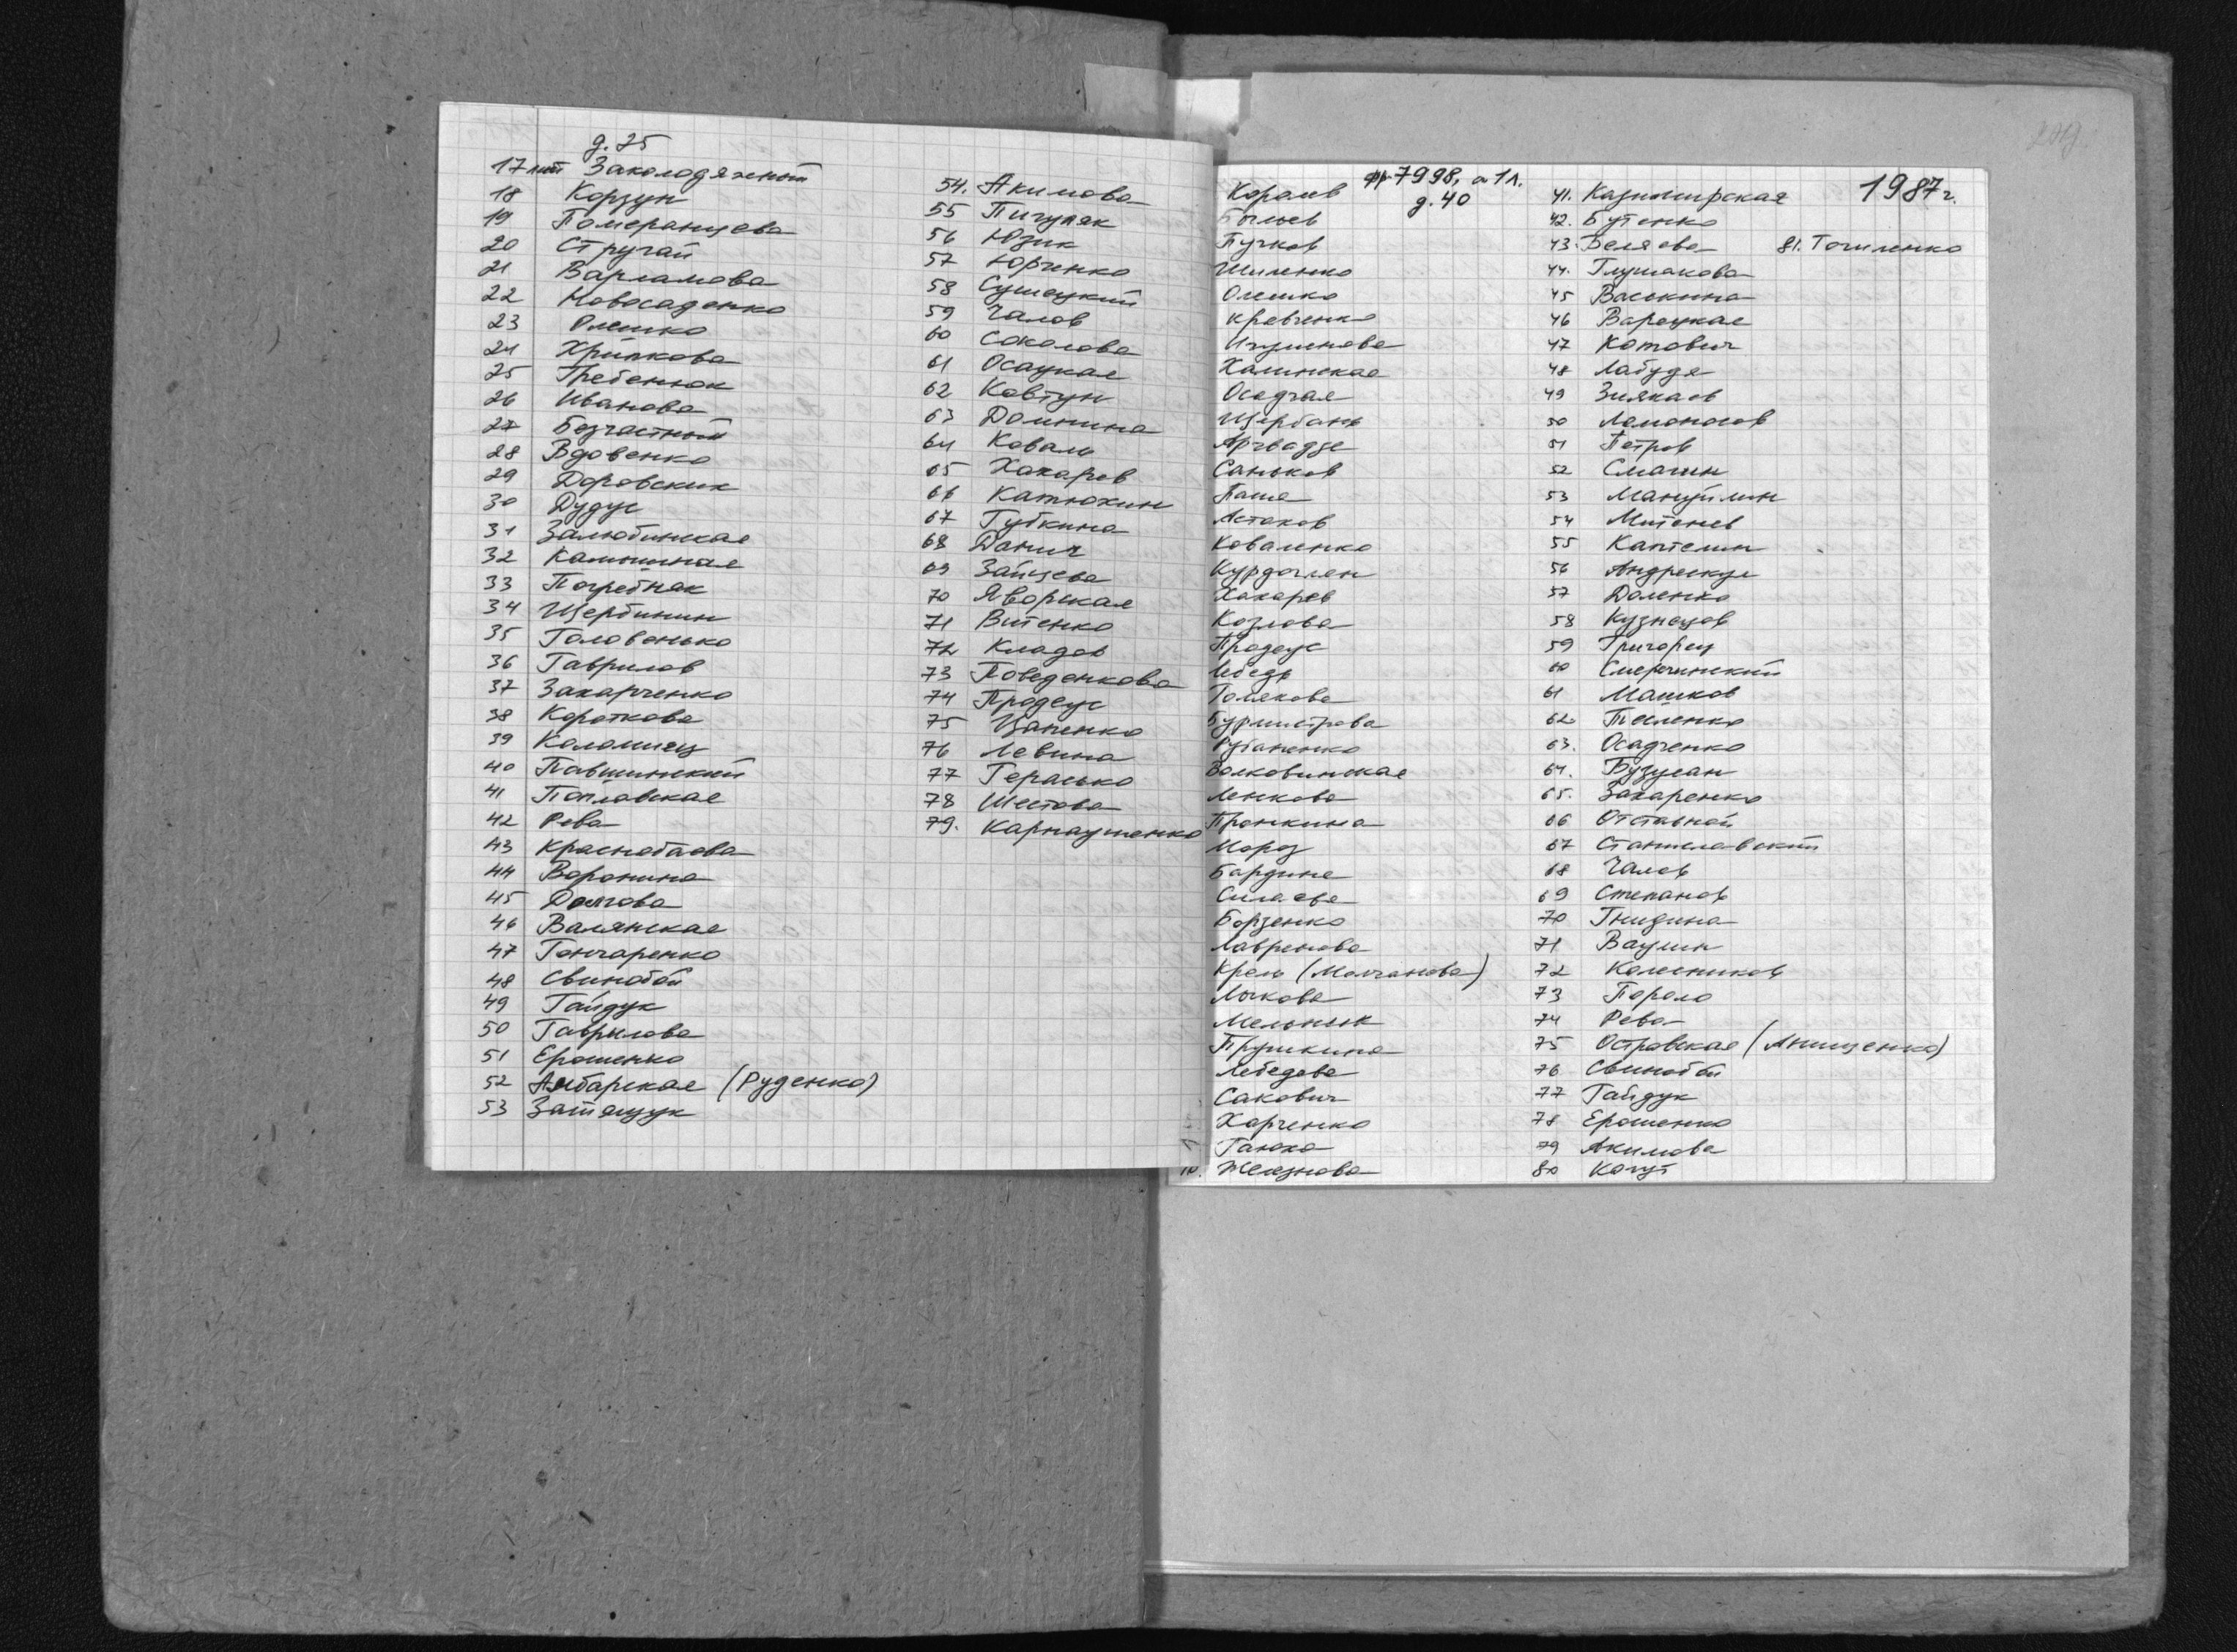 д. 25
17 лит Заколодяжный
18 Корзун
19 Померанцева
20 Стругай
21 Варламова
22 Новосаденко
23 Олешко
24 Хрипкова
25 Гребенюк
26 Иванова
27 Безчастный
28 Вдовенко
29 Доровских
30 Дудус
31 Залюбинская
32 Калинина
33 Погребняк
34 Щербинин
35 Головенько
36 Гаврилов
37 Захарченко
38 Короткова
39 Коломиец
40 Павшинский
41 Поплавская
42 Рева
43 Краснобаева
44 Воронина
45 Долгова
46 Валянская
47 Гончаренко
48 Свинобой
49 Гайдук
50 Гаврилова
51 Ерошенко
52 Амбарская (Руденко)
53 Затящук
54. Акимова
55 Пигуляк
56 Юзик
57 Юрченко
58 Сушецкий
59 Чалов
60 Соколова
61 Осацкая
62 Ковтун
63 Домнина
64 Коваль
65 Хахарев
66 Катюхин
67 Губкина
68 Данич
69 Зайцева
70 Яворская
71 Витенко
72 Кладов
73 Поведенкова
74 Продеус
75 Цапенко
76 Левина
77 Герасько
78 Шестова
79. Карнаушенко
фр-7998, о 1 л.
д. 40
1987 г.
Королев
Пучков
Шиленко
Олешко
Кравченко
Игумнова
Халинская
Осадчая
Щербань
Саньков
Паша
Астахов
Коваленко
Хахарев
Козлова
Продеус
Лебедь
Голякова
Бурмистрова
Рубаненко
Волковинская
Ленкова
Пронкина
Мороз
Бардина
Силаева
Борзенко
Лавренова
Крель (Молчанова)
Лыкова
Мельник
Лебедева
Сакович
Харченко
Ганжа
Железнова
41. Казимирская
42. Бутенко
43. Беляева
44. Глушакова
45 Васькина
46 Варецкая
47 Котович
48 Лабудя
49 Зиякаев
50 Ломоносов
51 Петров
52 Смагин
53 Мануйлин
54 Митенев
55 Каптелин
56 Андрейкус
57 Доленко
58 Кузнецов
59 Григорец
60 Смеречинский
61 Машков
62 Теленко
63. Осадченко
64. Бузулан
65. Захаренко
66 Отставной
67 Станиславский
68 Чалов
69 Степанов
70 Гнидина
71 Ваулин
72 Колесников
73 Пороло
74 Рева
75 Островская (Анищенко)
76 Свинобой
77 Гайдук
78 Ерошенко
79 Акимова
80 Когут
81. Точиленко